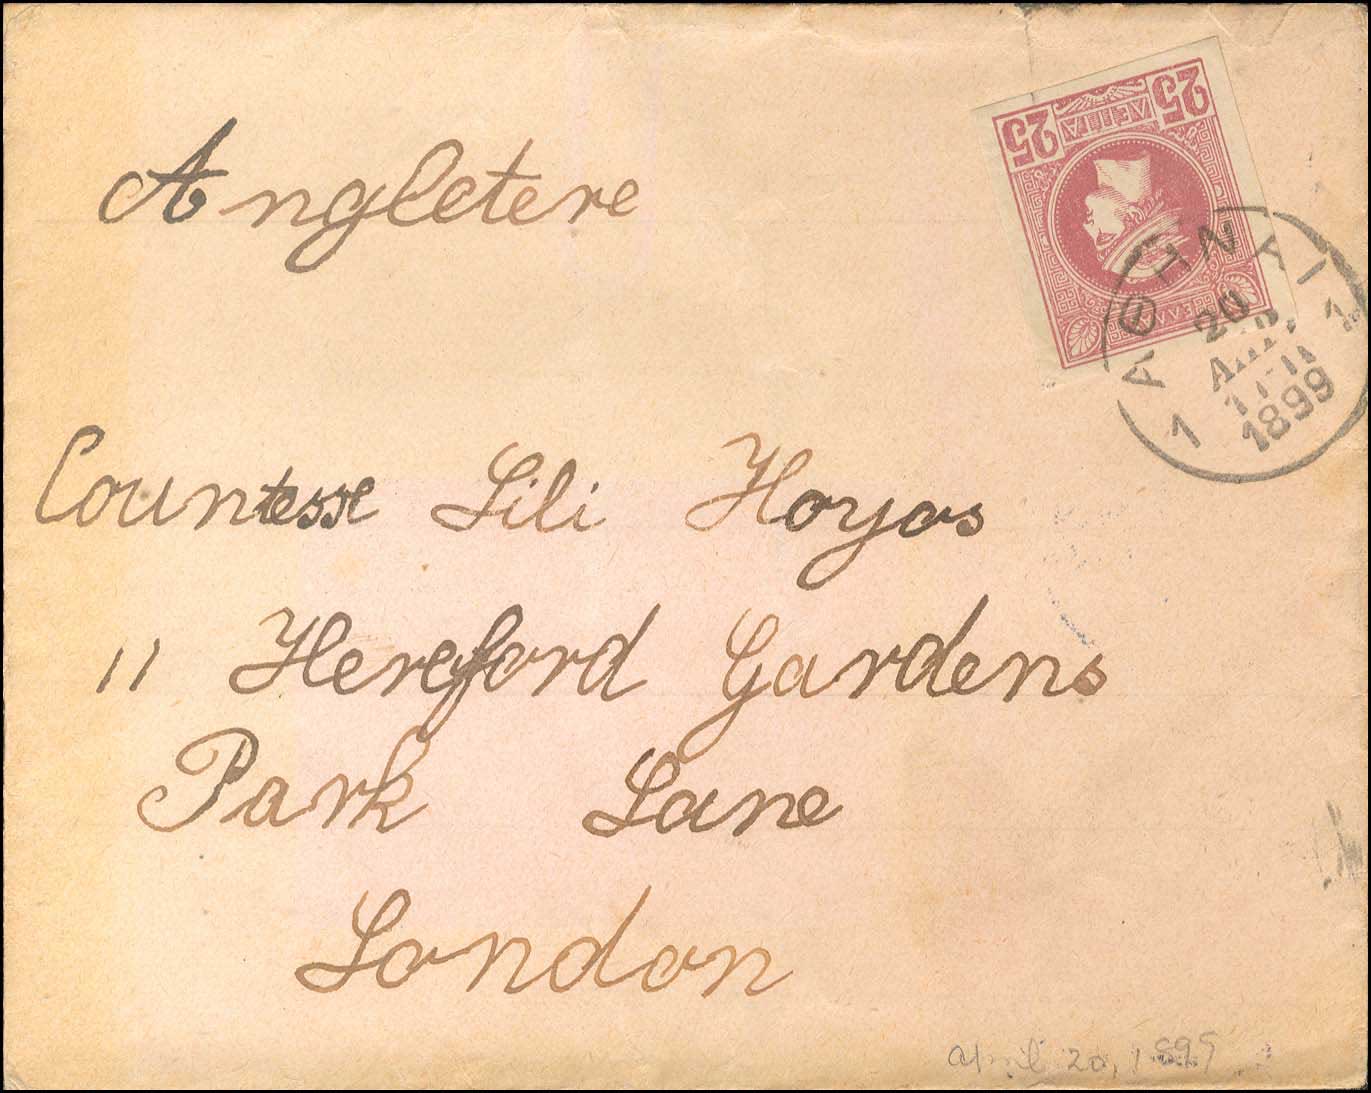 Angletere
25 ΛΕΠΤΑ 25
ΑΘΗΝΑΙ
20
ΑΠΡ.
11-11
1899
1 1
Countesse Lili Hoyos
11 Hereford Gardens
Park Lane
London
April 20, 1899